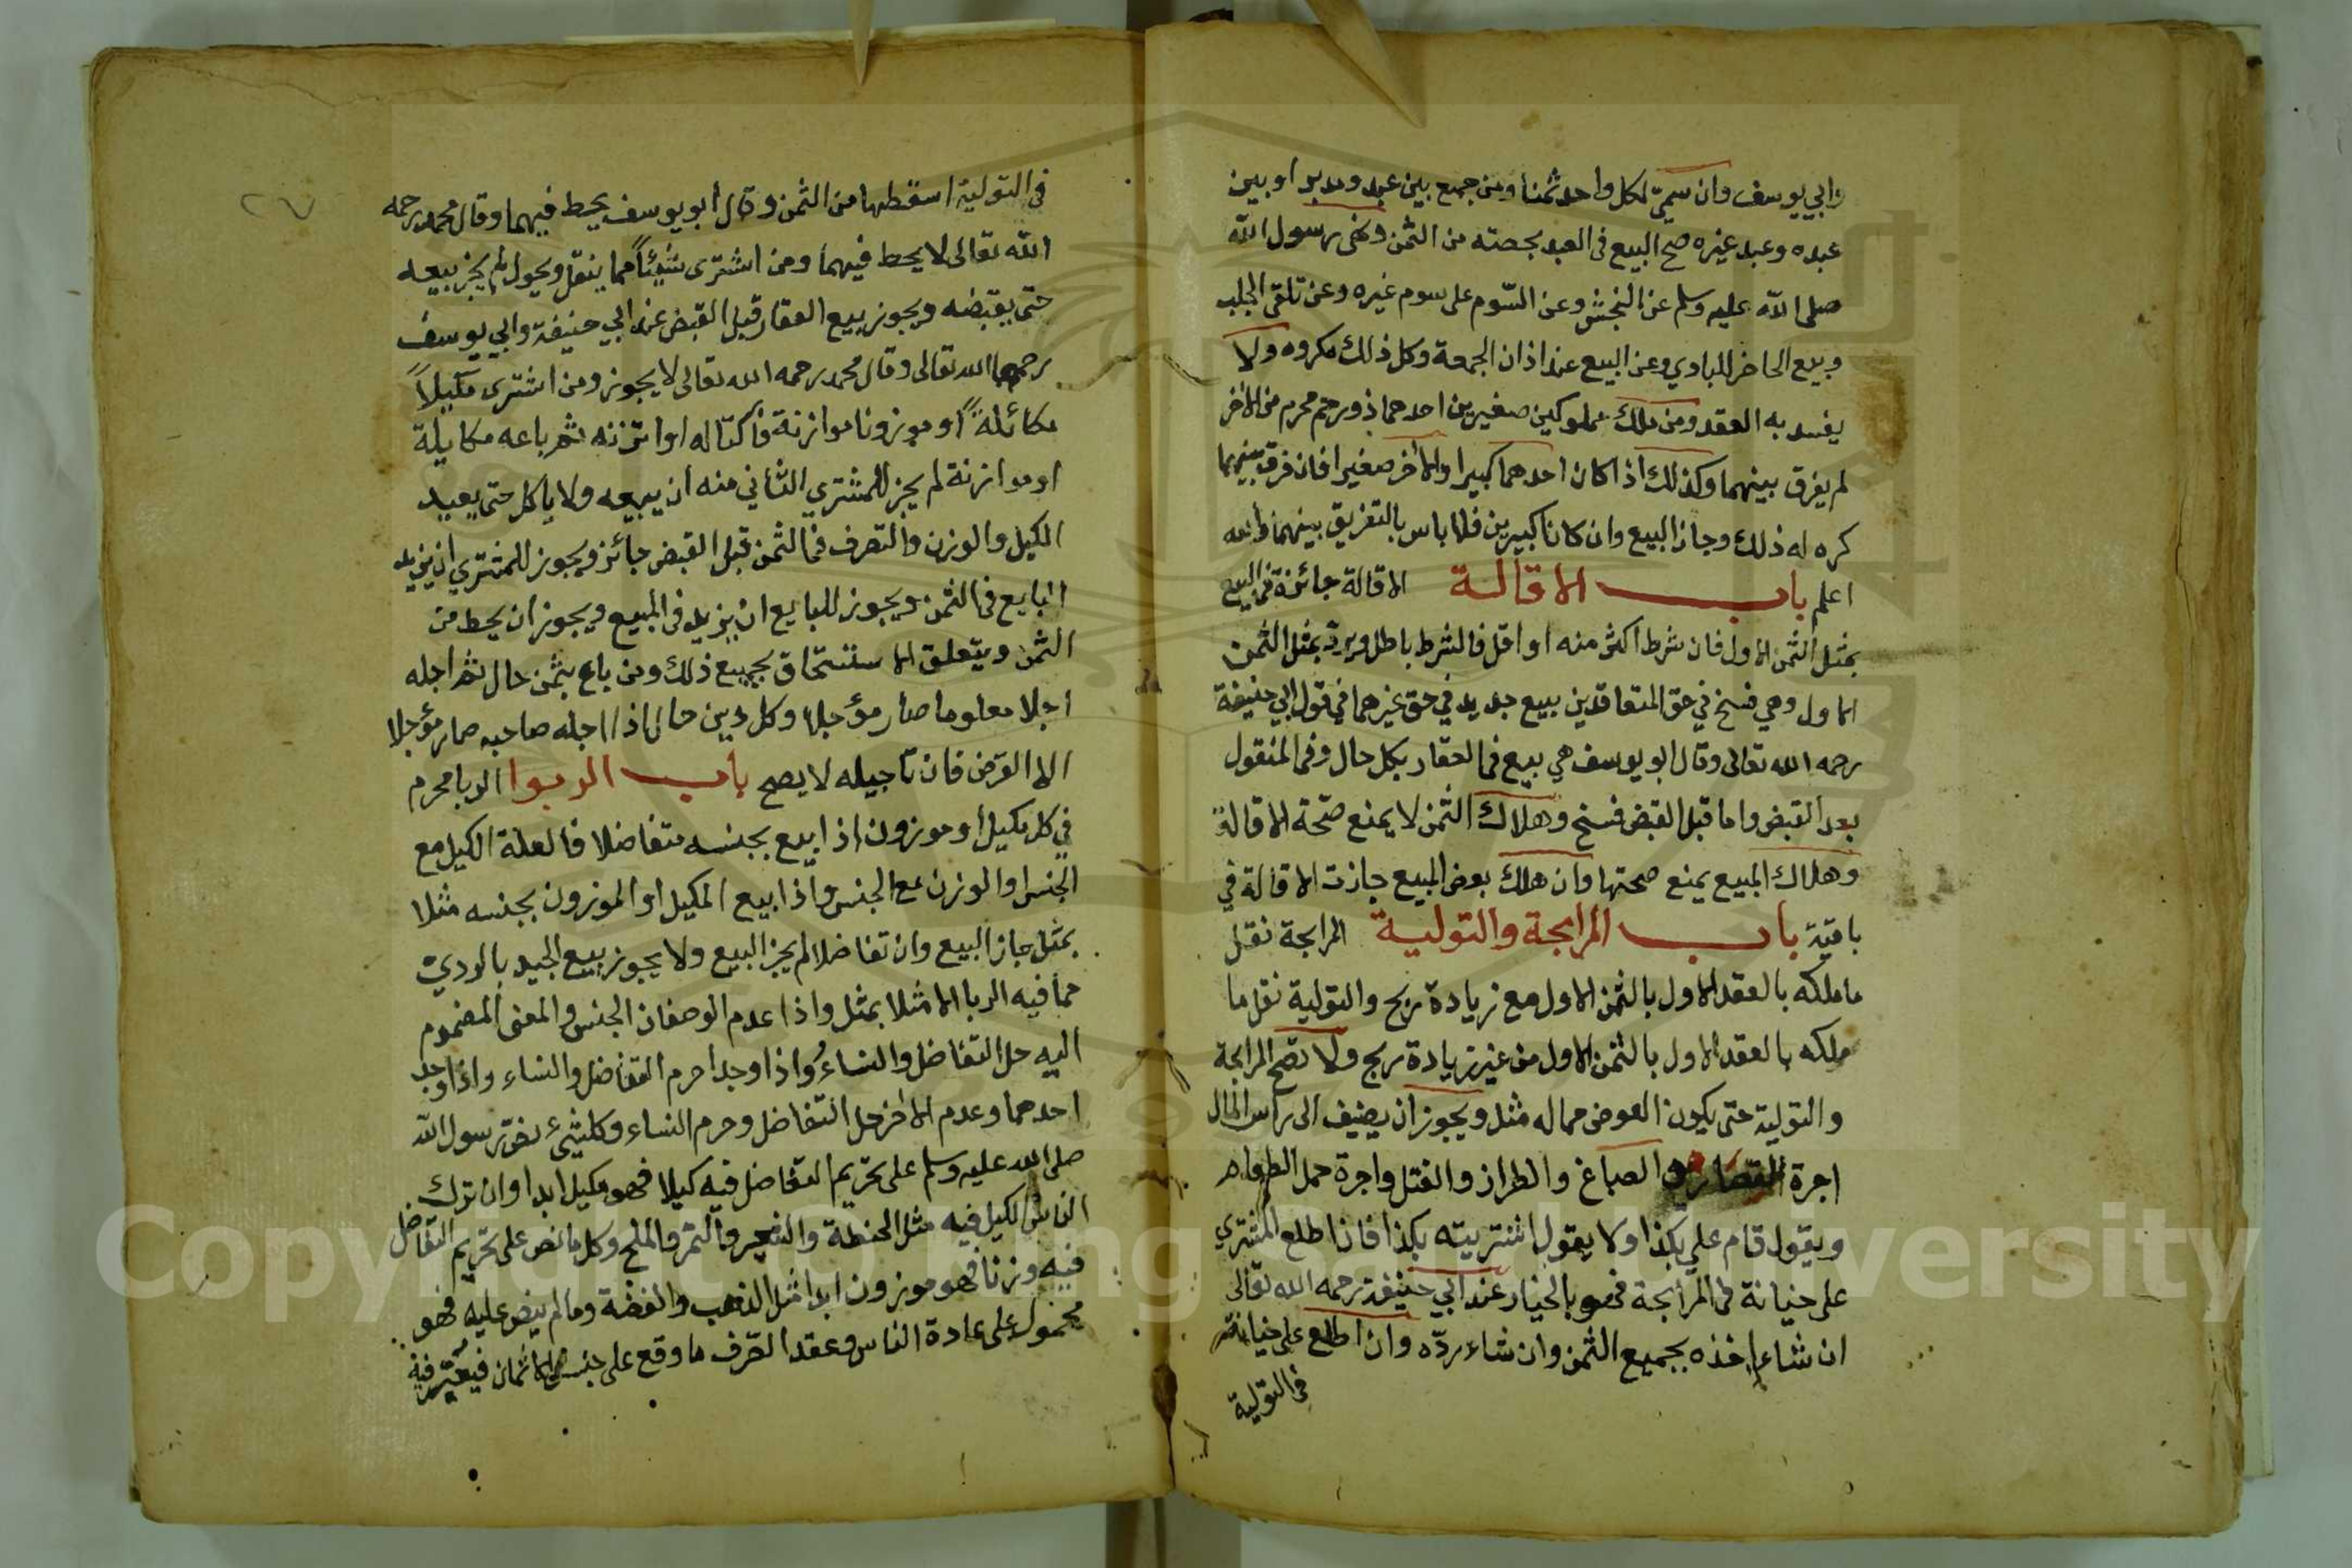 وابي يوسف وان سمي لكل واحد ثمنا ومن جمع بين عبد ومدبر او بين
عبده وعبد غيره صح البيع في العبد بحصته من الثمن ونهى رسول الله
صلى الله عليه وسلم عن النجش وعن السوم على سوم غيره وعن تلقي الجلب
وبيع الحاضر للبادي وعن البيع عند اذان الجمعة وكل ذلك مكروه ولا
يفسد به العقد ومن ملك مملوكين صغيرين احدهما ذو رحم محرم من الاخر
لم يفرق بينهما وكذلك اذا كان احدهما كبيرا والاخر صغيرا فان فرق بينهما
كره له ذلك وجاز البيع وان كانا كبيرين فلا باس بالتفريق بينهما والله
اعلم باب الاقالة الاقالة جائزة في البيع
بمثل الثمن الاول فان شرط اكثر منه او اقل فالشرط باطل ويرد بمثل الثمن
الاول وهي فسخ في حق المتعاقدين بيع جديد في حق غيرهما في قول ابي حنيفة
رحمه الله تعالى وقال ابو يوسف هي بيع في العقار بكل حال وفي المنقول
بعد القبض واما قبل القبض فسخ وهلاك الثمن لا يمنع صحة الاقالة
وهلاك المبيع يمنع صحتها وان هلك بعض المبيع جازت الاقالة في
باقية باب المرابحة والتولية المرابحة نقل
ما ملكه بالعقد الاول بالثمن الاول مع زيادة ربح والتولية نقل ما
ملكه بالعقد الاول بالثمن الاول من غير زيادة ربح ولا تصح المرابحة
والتولية حتى يكون العوض مما له مثل ويجوز ان يضيف الى راس المال
اجرة القصار والصباغ والطراز والفتل واجرة حمل الطعام
ويقول قام علي بكذا ولا يقول اشتريته بكذا فاذا اطلع المشتري
على خيانة في المرابحة فهو بالخيار عند ابي حنيفة رحمه الله تعالى
ان شاء اخذه بجميع الثمن وان شاء رده وان اطلع على خيانة
في التولية
في التولية اسقطها من الثمن وقال ابو يوسف يحط فيهما وقال محمد رحمه
الله تعالى لا يحط فيهما ومن اشترى شيئا مما ينقل ويحول لم يجز بيعه
حتى يقبضه ويجوز بيع العقار قبل القبض عند ابي حنيفة وابي يوسف
رحمهما الله تعالى وقال محمد رحمه الله تعالى لا يجوز ومن اشترى مكيلا
مكائلة او موزونا موازنة فاكتاله او اتزنه ثم باعه مكايلة
او موازنة لم يجز للمشتري الثاني منه ان يبيعه ولا ياكل حتى يعيد
الكيل والوزن والتصرف في الثمن قبل القبض جائز ويجوز للمشتري ان يزيد
البايع في الثمن ويجوز للبايع ان يزيد في المبيع ويجوز ان يحط من
الثمن ويتعلق الاستحقاق بجميع ذلك ومن باع بثمن حال ثم اجله
اجلا معلوما صار مؤجلا وكل دين حال اذا اجله صاحبه صار مؤجلا
الا القرض فان تاجيله لا يصح باب الربوا الربا محرم
في كل مكيل او موزون اذا بيع بجنسه متفاضلا فالعلة الكيل مع
الجنس او الوزن مع الجنس واذا بيع المكيل او الموزون بجنسه مثلا
بمثل جاز البيع وان تفاضلا لم يجز البيع ولا يجوز بيع الجيد بالردي
مما فيه الربا الا مثلا بمثل واذا عدم الوصفان الجنس والمعنى المضموم
اليه حل التفاضل والنساء واذا وجدا حرم التفاضل والنساء واذا وجد
احدهما وعدم الاخر حل التفاضل وحرم النساء وكل شيء نص رسول الله
صلى الله عليه وسلم على تحريم التفاضل فيه كيلا فهو مكيل ابدا وان ترك
الناس الكيل فيه مثل الحنطة والشعير والتمر والملح وكل ما نص على تحريم التفاضل
فيه وزنا فهو موزون ابدا مثل الذهب والفضة وما لم ينص عليه فهو
محمول على عادة الناس وعقد الصرف ما وقع على جنس الاثمان فيعتبر فيه
Copyright © King Saud University